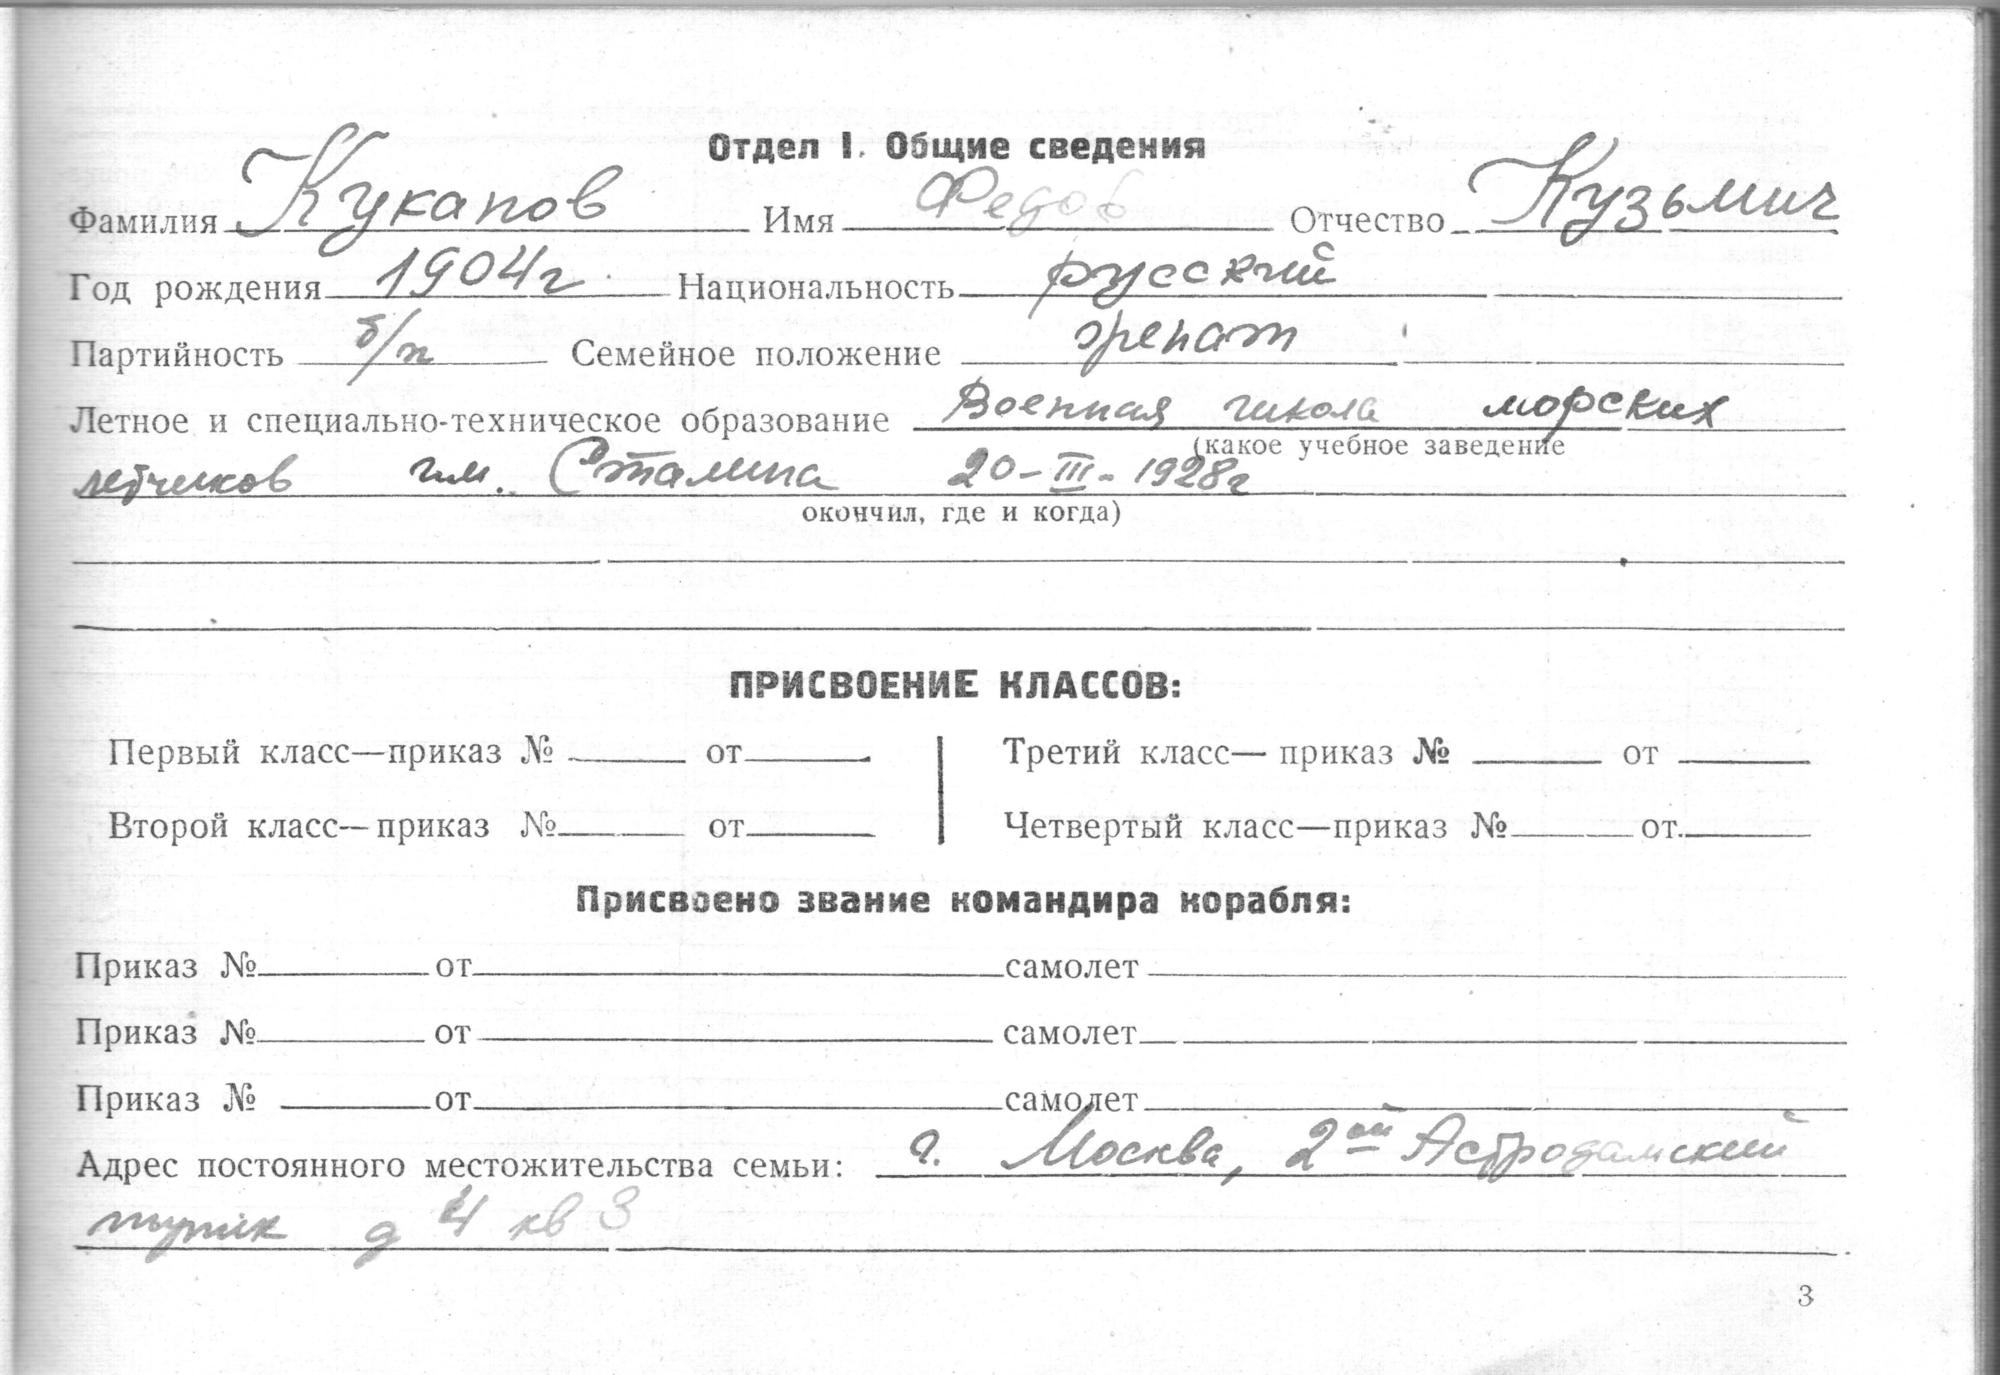 Отдел I. Общие сведения
Фамилия Куканов Имя Федор Отчество Кузьмич
Год рождения 1904г Национальность русский
Партийность б/п Семейное положение женат
Летное и специально-техническое образование Военная школа морских
(какое учебное заведение
летчиков им. Сталина 20-III-1928г
окончил, где и когда)
ПРИСВОЕНИЕ КЛАССОВ:
Первый класс—приказ № от Третий класс—приказ № от
Второй класс—приказ № от Четвертый класс—приказ № от
Присвоено звание командира корабля:
Приказ № от самолет
Приказ № от самолет
Приказ № от самолет
Адрес постоянного местожительства семьи: г. Москва, 2ой Астродамский
тупик д 4 кв 3
3